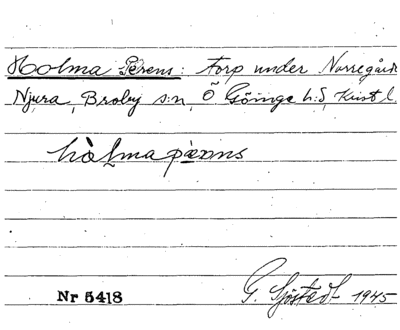 Holma Perens: torp under Norregård
Njura, Broby s:n, Ö Göinge h:d, Krist l.
hòlmapæ̀rəns
Nr 5418
G. Sjöstedt 1945